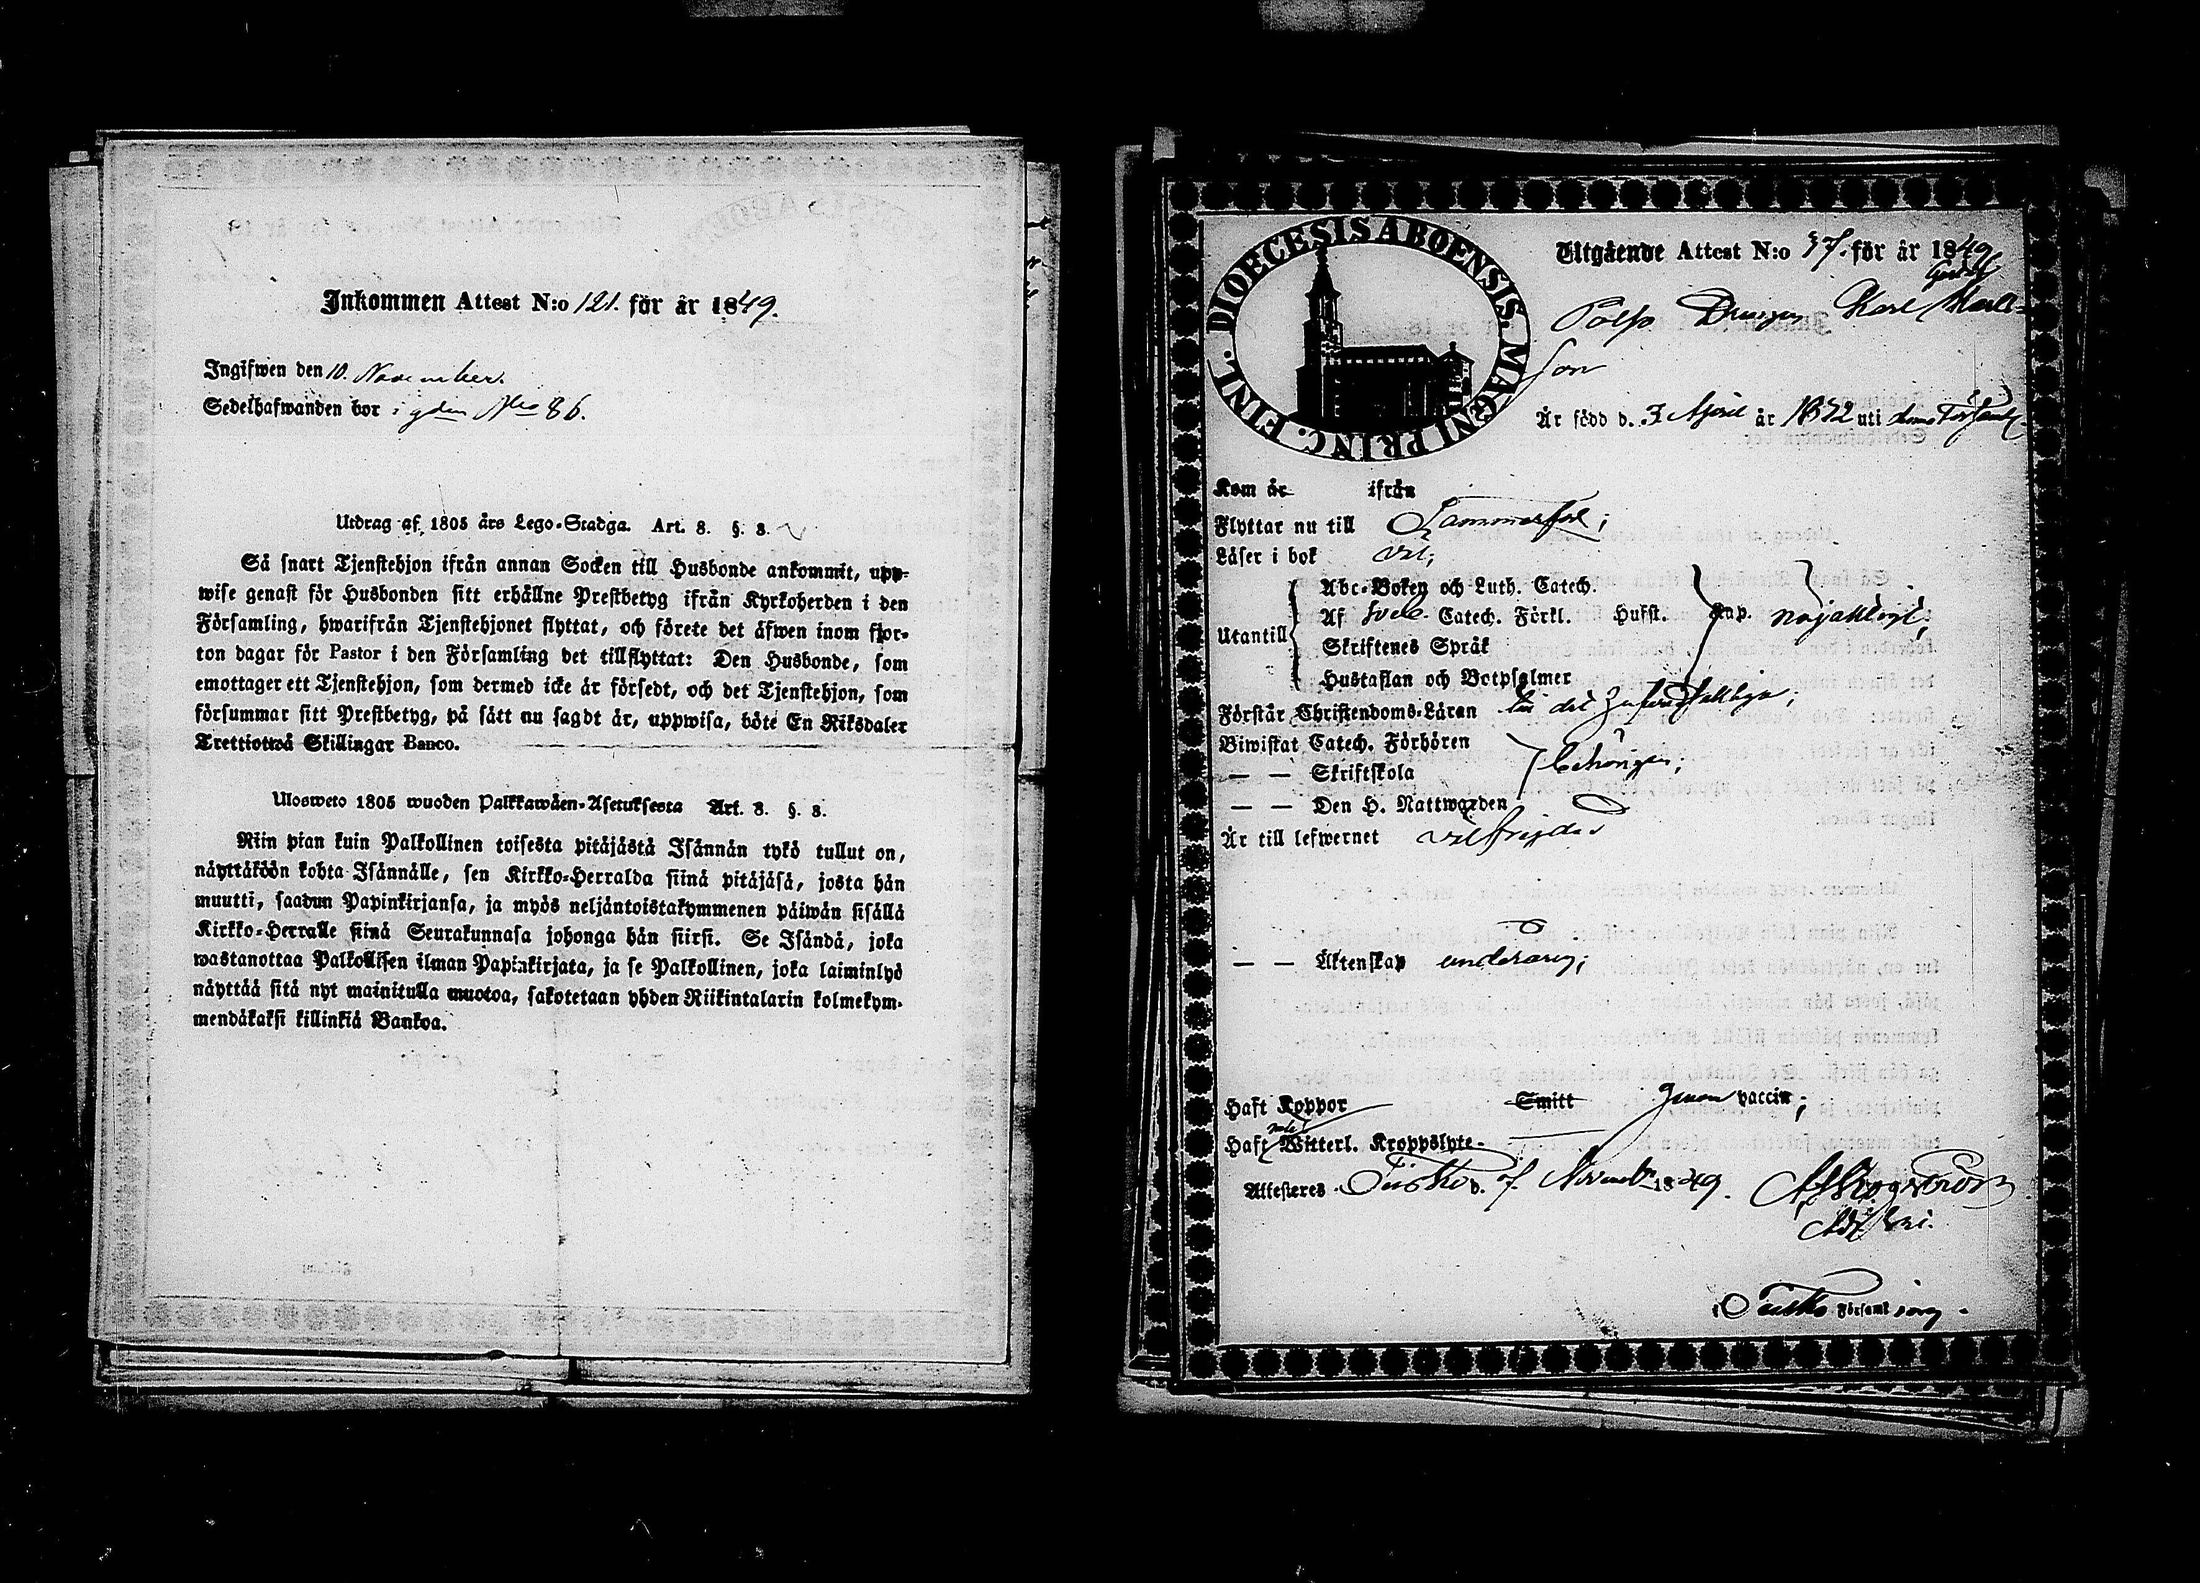 Inkommen Attest N:o 121. för år 1849.
Ingifwen den 10. November.
Sedelhafwanden bor i gden No 86.
Utdrag af 1805 års Lego-Stadga. Art. 8. §. 8.
Så snart Tjenstehjon ifrån annan Socken till Husbonde ankommit, upp-
wise genast för Husbonden sitt erhållne Prestbetyg ifrån Kyrkoherden i den
Församling, hwarifrån Tjenstehjonet flyttat, och förete det äfwen inom fjor-
ton dagar för Pastor i den Församling det tillflyttat: Den Husbonde, som
emottager ett Tjenstehjon, som dermed icke är försedt, och det Tjenstehjon, som
försummar sitt Prestbetyg, på sätt nu sagdt är, uppwisa, böte En Riksdaler
Trettiotwå Skillingar Banco.
Ulosweto 1805 wuoden Palkkawäen-Asetuksesta Art. 8. §. 8.
Niin pian kuin Palkollinen toisesta pitäjästä Isännän tykö tullut on,
näyttäköön kohta Isännälle, sen Kirkko-Herralda siinä pitäjäsä, josta hän
muutti, saadun Papinkirjansa, ja myös neljäntoistakymmenen päiwän sisällä
Kirkko-Herralle siinä Seurakunnasa johonga hän siirsi. Se Isändä, joka
wastanottaa Palkollisen ilman Papinkirjata, ja se Palkollinen, joka laiminlyö
näyttää sitä nyt mainitulla muotoa, sakotetaan yhden Riikintalarin kolmekym-
mendäkaksi killinkiä Bankoa.
DIOECESIS ABOENSIS. MAGNI PRINC. FINL.
Utgående Attest N:o 37. för år 1849
Gustaf
Drengen Karl Karls-
son
Är född d. 3 April år 1832 uti denna Församl.
Kom år ifrån
Flyttar nu till Tammerfors;
Läser i bok väl;
Utantill
Abc-Boken och Luth. Catech.
Af Sveb. Catech. Förkl. Hufst. Kap. nöjaktligt;
Skriftenes Språk
Hustaflan och Botpsalmer
Förstår Christendoms-Läran
Biwistat Catech. Förhören
— — Skriftskola behörigen;
— — Den H. Nattwarden
Är till lefwernet välfrejdad
— — Äktenskap
Haft Koppor Smitt genom vaccin;
Haft Witterl. Kroppslyte
Attesteras d. 7. Novemb. 1849.
i Församling.